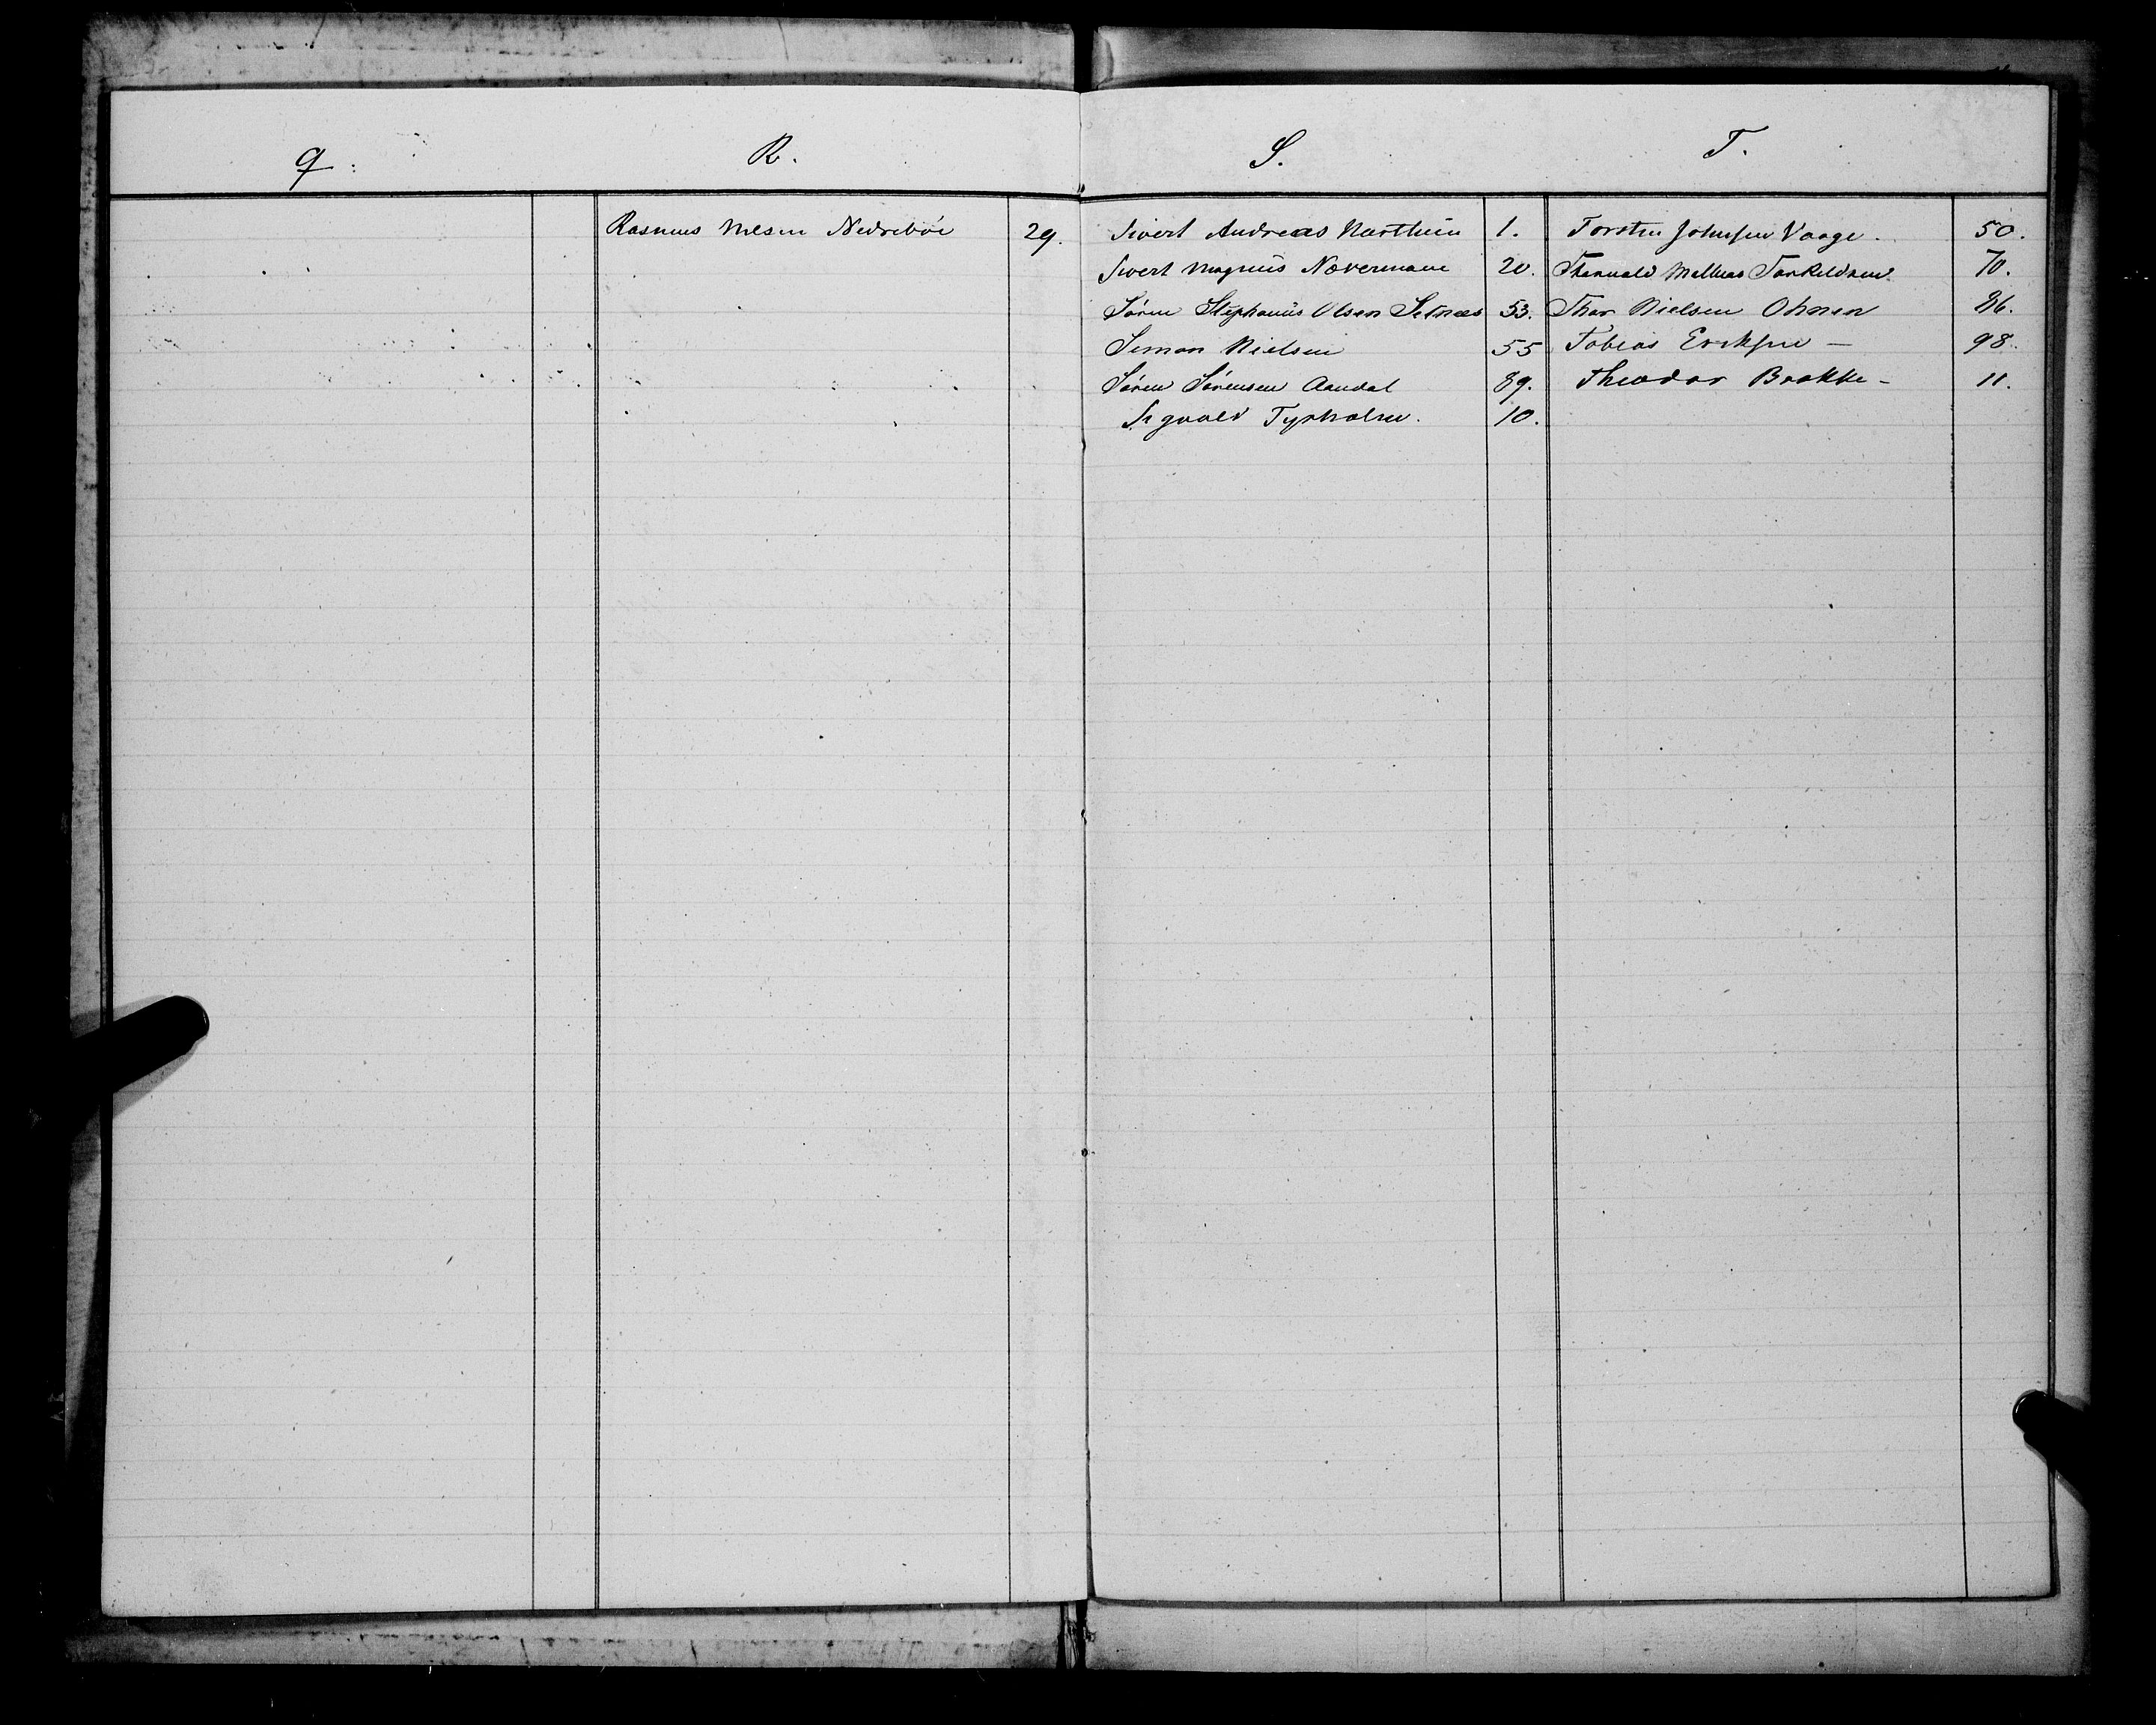 Q.
R.
Rasmus Nilsen Nedrebøe 29.
S.
Sivert Andreas Narthuin 1.
Sivert Magnus Nævermann 20.
Søren Stephanus Olsen Setnæs 53.
Simon Nielsen 55
Søren Sørensen Aandal 89.
Sigvald Tyrholm. 10.
T.
Torsten Johnsen Vaage. 50.
Thorvald Mathias Torkeldsen 70.
Thor Nielsen Ohnen 86.
Tobias Eriksen — 98.
Theodor Brakke - 11.